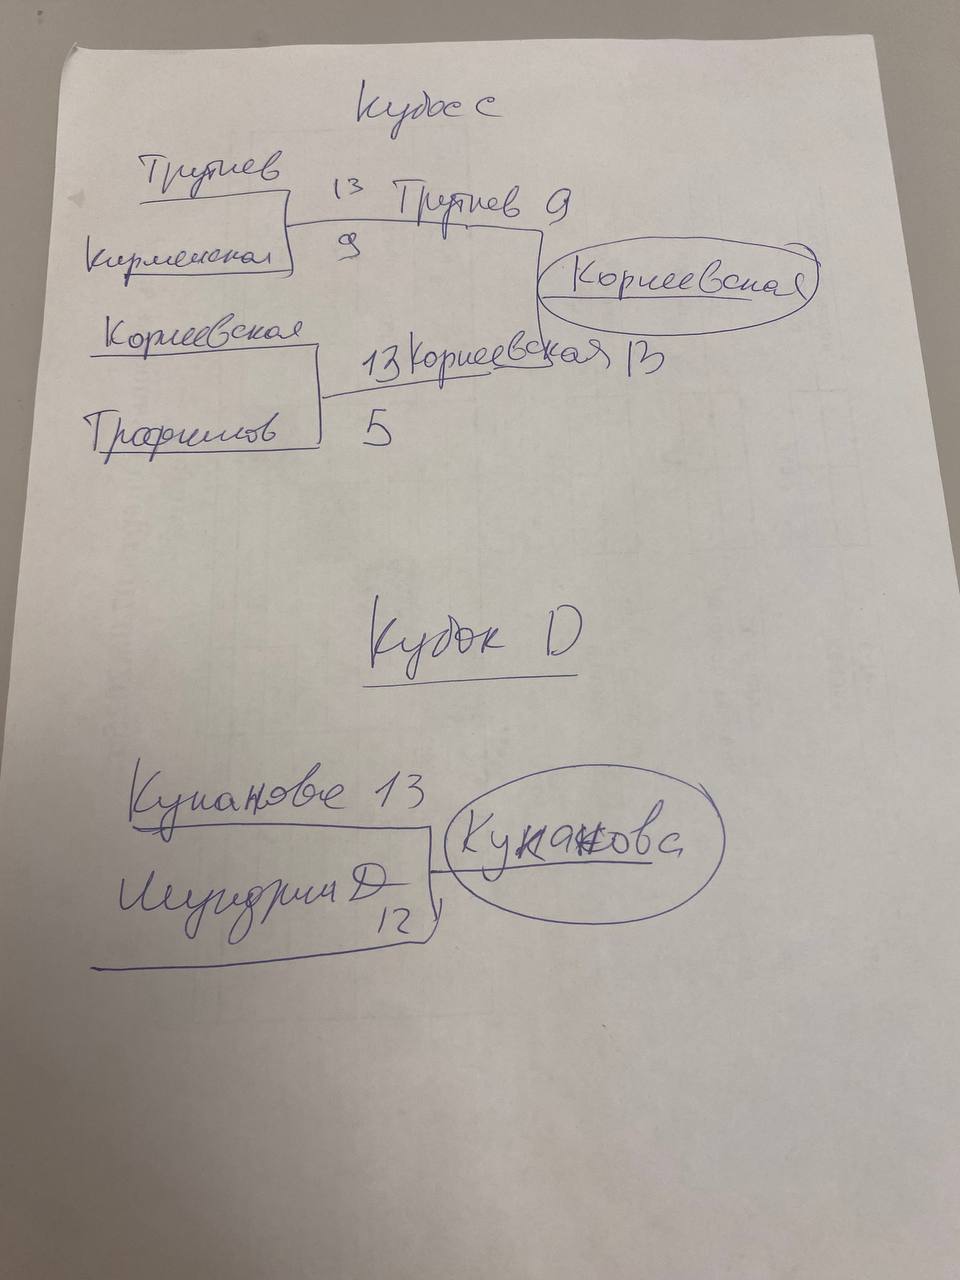 Кубок С
Трутнев
13 Трутнев 9
Кирменская
9
Корнеевская
Корнеевская
13 Корнеевская 13
Трофимов
5
Кубок D
Куканова 13
Куканова
D
12